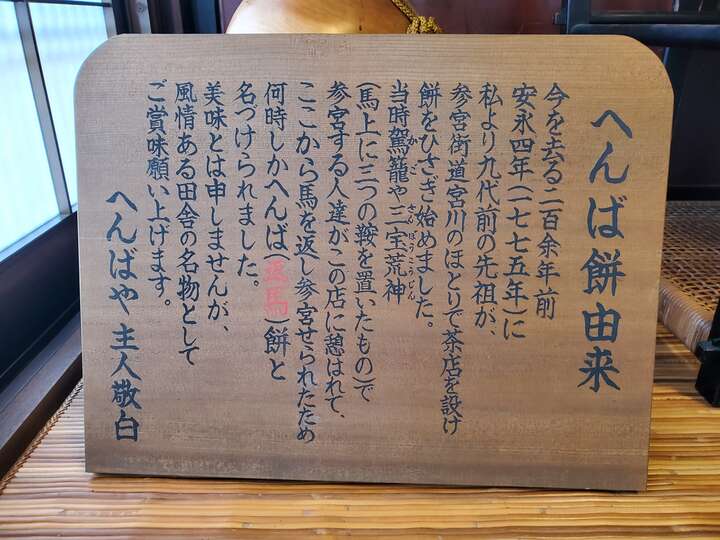 へんば餅由来
今を去る二百余年前
安永四年(一七七五年)に
私より九代前の先祖が、
参宮街道宮川のほとりで茶店を設け
餅をひさぎ始めました。
当時駕籠や三宝荒神
かご さんぽうこうじん
(馬上に三つの鞍を置いたもの)で
参宮する人達がこの店に憩はれて、
ここから馬を返し参宮せられたため
何時しかへんば(返馬)餅と
名づけられました。
美味とは申しませんが、
風情ある田舎の名物として
ご賞味願い上げます。
へんばや主人敬白